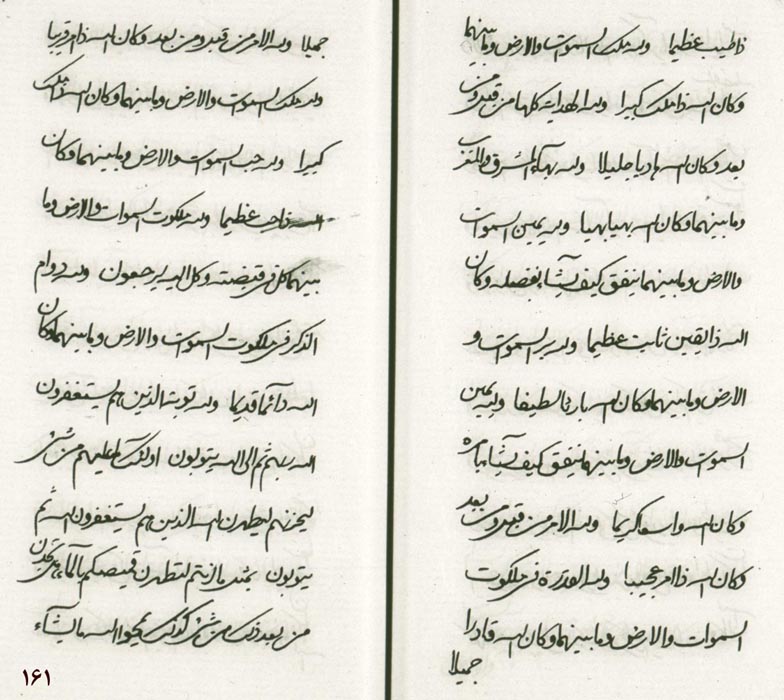 ذا طيب عظيما ولله ملك السموات والارض وما بينهما
وكان الله ذا ملك كبيرا ولله الهداية كلها من قبل ومن
بعد وكان الله هاديا جليلا ولله بهآء المشرق والمغرب
وما بينهما وكان الله بهيا بهيا ولله يمين السموات
والارض وما بينهما ينفق كيف يشآء بفضله وكان
الله ذا يقين ثابت عظيما ولله بر السموات و
الارض وما بينهما وكان الله بارئا لطيفا ولله يمين
السموات والارض وما بينهما ينفق كيف يشآء بامره
وكان الله واسعا كريما ولله الامر من قبل ومن بعد
وكان الله ذا امر عجيبا ولله القدرة في ملكوت
السموات والارض وما بينهما وكان الله قادرا
جميلا
جميلا ولله الامر من قبل ومن بعد وكان الله ذا امر قريبا
ولله ملك السموات والارض وما بينهما وكان الله ذا ملك
كبيرا ولله حب السموات والارض وما بينهما وكان
الله ذا حب عظيما ولله ملكوت السموات والارض وما
بينهما كل في قبضته وكل اليه يرجعون ولله دوام
الذكر في ملكوت السموات والارض وما بينهما وكان
الله دآئما قديما ولله توبة الذين هم يستغفرون
الله ربهم ثم الى الله يتوبون اولئك ما عليهم من شئ
ليحزنهم ليطهرن الله الذين هم يستغفرون الله ثم
يتوبون بمثل ما انتم لتطهرن قميصكم بالمآء
من بعد ذلك من شئ كذلك يمحوا الله ما يشآء
١٦١